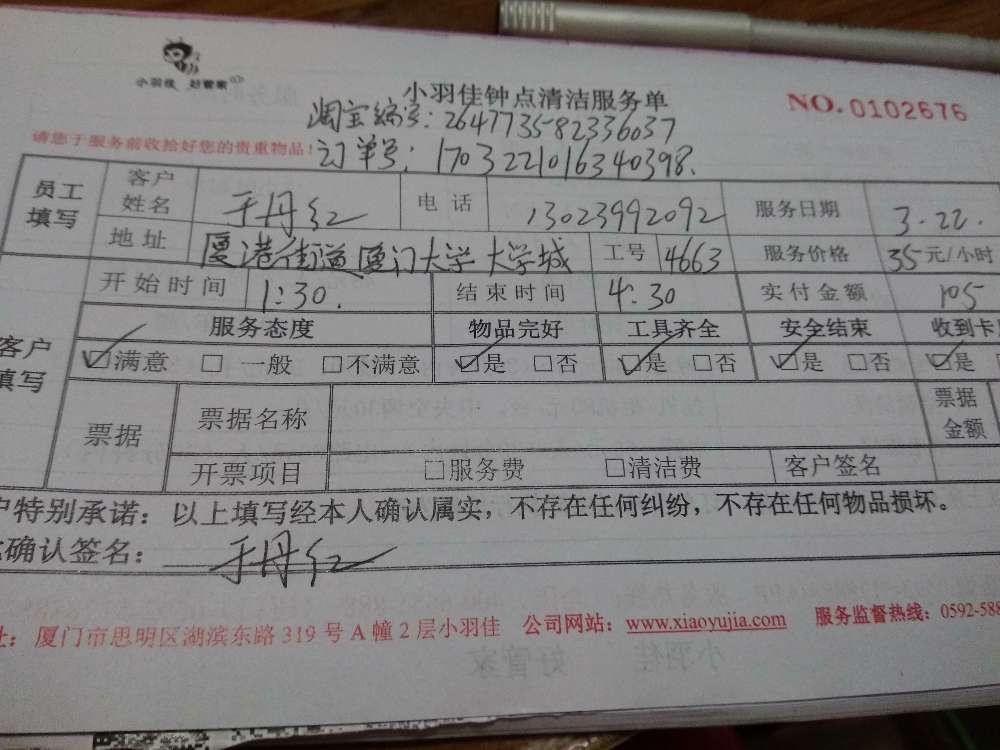 小羽佳 好管家
小羽佳钟点清洁服务单
NO.0102676
淘宝编号:264773582336037
请您于服务前收拾好您的贵重物品!
订单号:1703221016340398.
员工填写 客户姓名 于丹红 电话 13023992092 服务日期 3.22.
地址 厦港街道厦门大学大学城 工号 4663 服务价格 35元/小时
客户填写 开始时间 1:30. 结束时间 4:30 实付金额 105
服务态度 物品完好 工具齐全 安全结束 收到卡
☑满意 □一般 □不满意 ☑是 □否 ☑是 □否 ☑是 □否 ☑是
票据 票据名称 票据金额
开票项目 □服务费 □清洁费 客户签名
户特别承诺:以上填写经本人确认属实,不存在任何纠纷,不存在任何物品损坏。
确认签名: 于丹红
址:厦门市思明区湖滨东路319号A幢2层小羽佳 公司网站:www.xiaoyujia.com 服务监督热线:0592-588